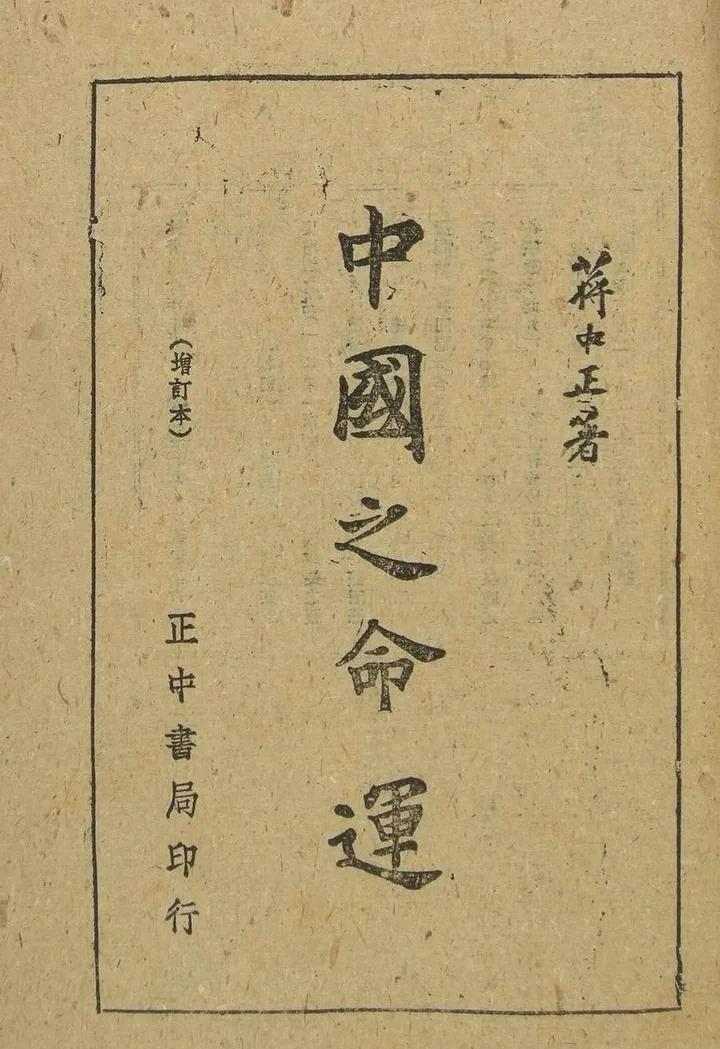 蔣中正著
中國之命運
(增訂本)
正中書局印行